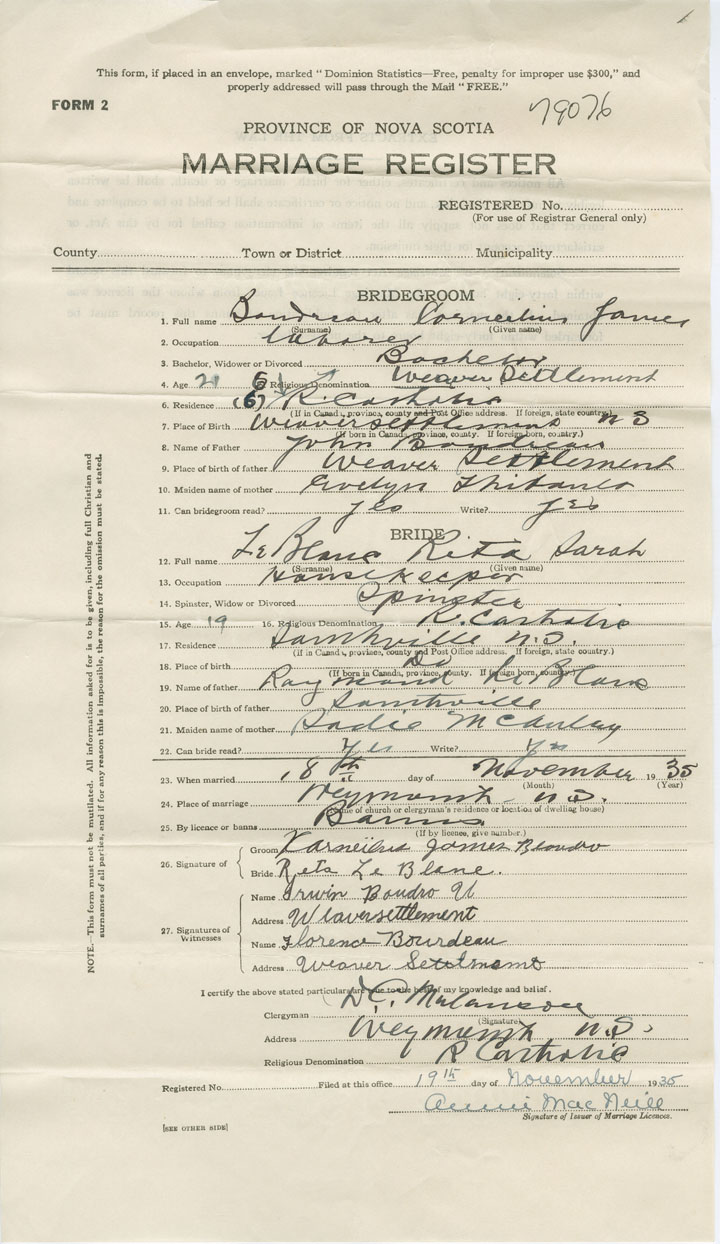 This form, if placed in an envelope, marked "Dominion Statistics—Free, penalty for improper use $300," and
properly addressed will pass through the Mail "FREE."
FORM 2
79076
PROVINCE OF NOVA SCOTIA
MARRIAGE REGISTER
REGISTERED No.
(For use of Registrar General only)
County Town or District Municipality
BRIDEGROOM
1. Full name Boudreau Cornelius James
(Surname) (Given name)
2. Occupation laborer
3. Bachelor, Widower or Divorced Bachelor
4. Age 21 5 Religious Denomination Weaver Settlement
6. Residence (6) R. Catholic
(If in Canada, province, county and Post Office address. If foreign, state country.)
7. Place of Birth Weaver Settlement N S
(If born in Canada, province, county. If foreign born, country.)
8. Name of Father John Boudreau
9. Place of birth of father Weaver Settlement
10. Maiden name of mother Evelyn Thibault
11. Can bridegroom read? yes Write? yes
BRIDE
12. Full name Le Blanc Rita Sarah
(Surname) (Given name)
13. Occupation Housekeeper
14. Spinster, Widow or Divorced Spinster
15. Age 19 16. Religious Denomination R. Catholic
17. Residence N.S.
(If in Canada, province, county and Post Office address. If foreign, state country.)
18. Place of birth Do
(If born in Canada, province, county. If foreign born, country.)
19. Name of father Raymond Le Blanc
20. Place of birth of father
21. Maiden name of mother Sadie McCauley
22. Can bride read? Yes Write? Yes
23. When married 18th day of November 1935
(Month) (Year)
24. Place of marriage Weymouth N.S.
(Name of church or clergyman's residence or location of dwelling house)
25. By licence or banns Banns
(If by licence, give number.)
26. Signature of
Groom James
Bride Reta Le Blanc.
27. Signatures of Witnesses
Name Irwin Boudro
Address Weaversettlement
Name Florence Bourdeau
Address Weaver Setelment
I certify the above stated particulars are true to the best of my knowledge and belief.
Clergyman D.C. Melanson
(Signature)
Address Weymouth N.S.
Religious Denomination R Catholic
Registered No. Filed at this office 19th day of November 1935
Annie MacNeill
Signature of Issuer of Marriage Licences.
[SEE OTHER SIDE]
NOTE.—This form must not be mutilated. All information asked for is to be given, including full Christian and
surnames of all parties, and if for any reason this is impossible, the reason for the omission must be stated.